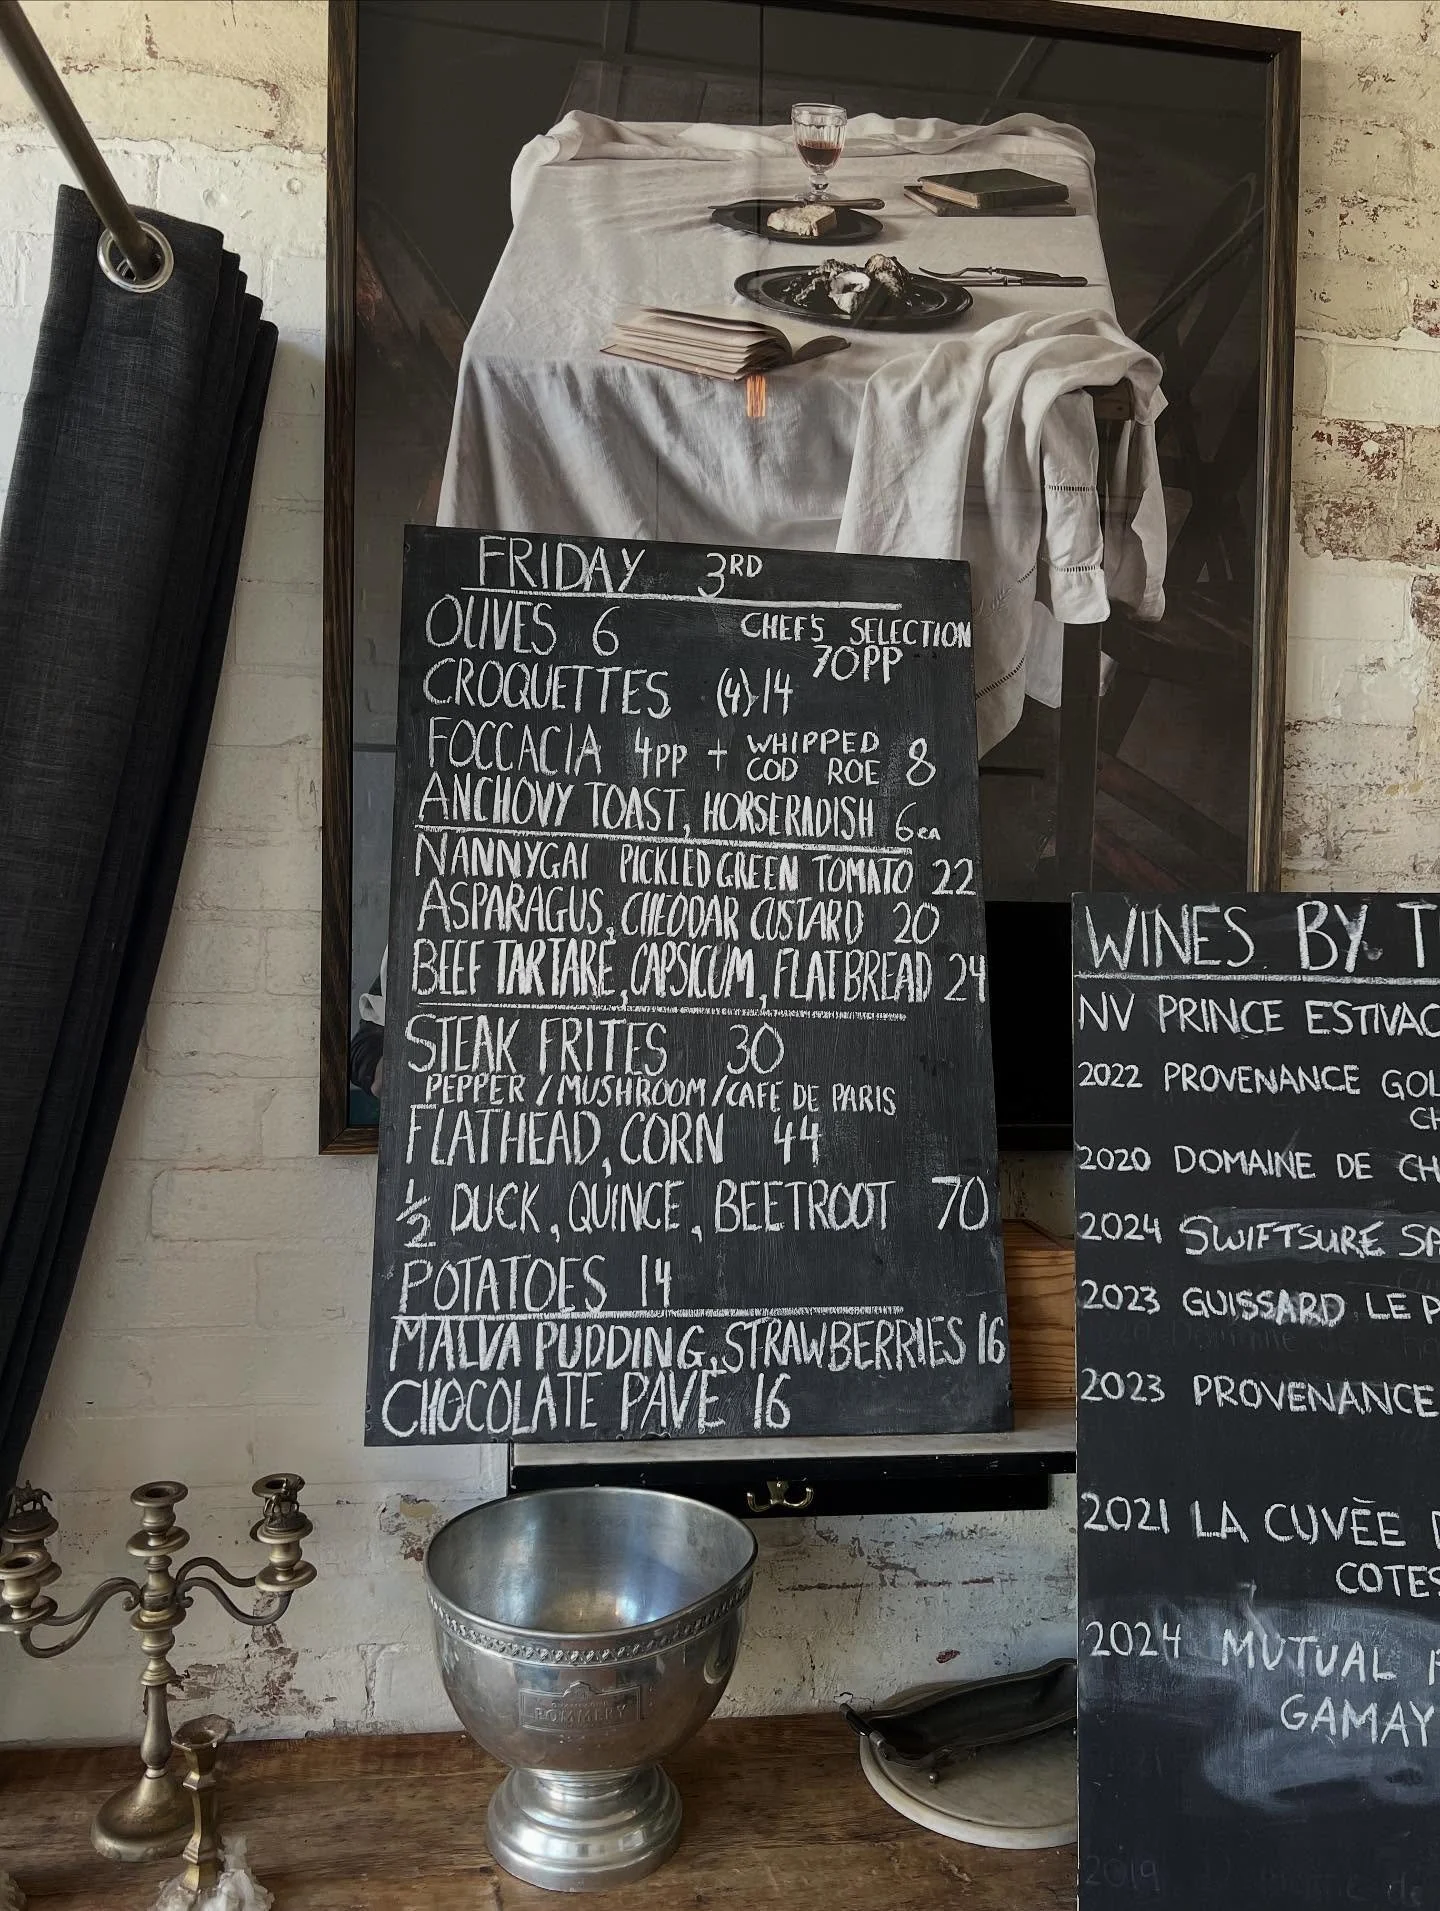 FRIDAY 3RD
OLIVES 6
CHEF'S SELECTION
70PP
CROQUETTES (4) 14
FOCCACIA 4PP + WHIPPED COD ROE 8
ANCHOVY TOAST, HORSERADISH 6ea
NANNYGAI PICKLED GREEN TOMATO 22
ASPARAGUS, CHEDDAR CUSTARD 20
BEEF TARTARE, CAPSICUM, FLATBREAD 24
STEAK FRITES 30
PEPPER / MUSHROOM / CAFE DE PARIS
FLATHEAD, CORN 44
1/2 DUCK, QUINCE, BEETROOT 70
POTATOES 14
MALVA PUDDING, STRAWBERRIES 16
CHOCOLATE PAVE 16
WINES BY
NV PRINCE ESTIVAC
2022 PROVENANCE GOL
CH
2020 DOMAINE DE CH
2024 SWIFTSURE SA
2023 GUISSARD LE P
2023 PROVENANCE
2021 LA CUVÉE
COTES
2024 MUTUAL
GAMAY
2019
POMMERY